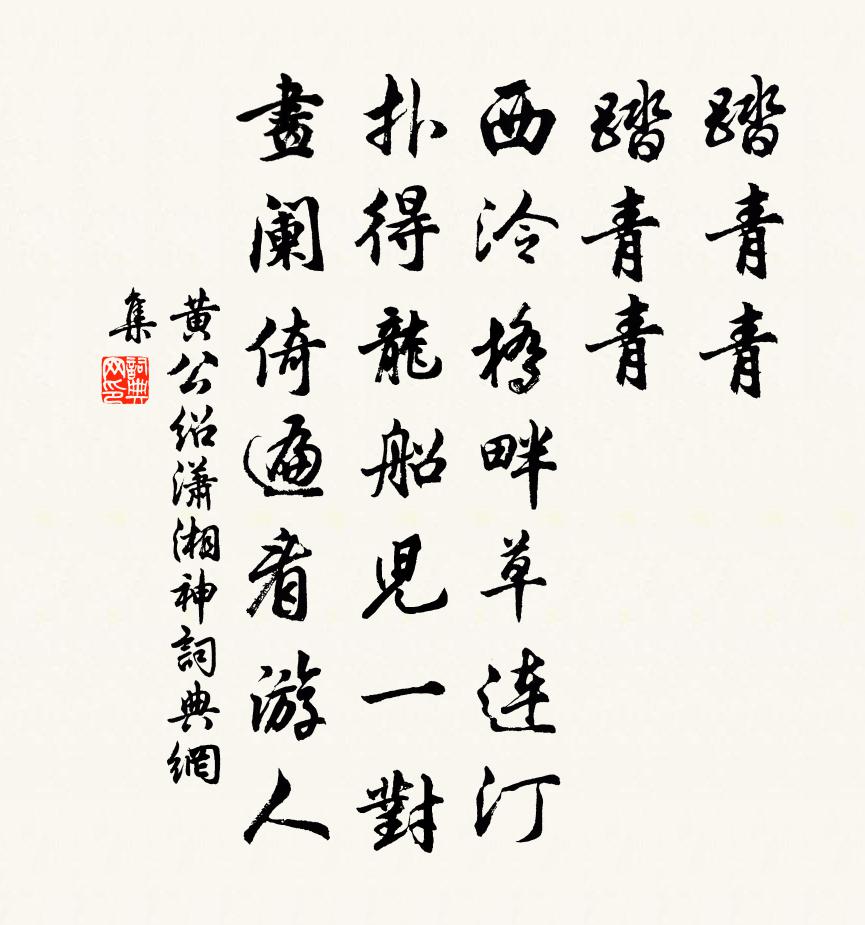 踏青青
踏青青
西泠橋畔草連汀
扑得龍船兒一對
畫闌倚遍看游人
黄公绍瀟湘神詞典網
集
詞典
网印